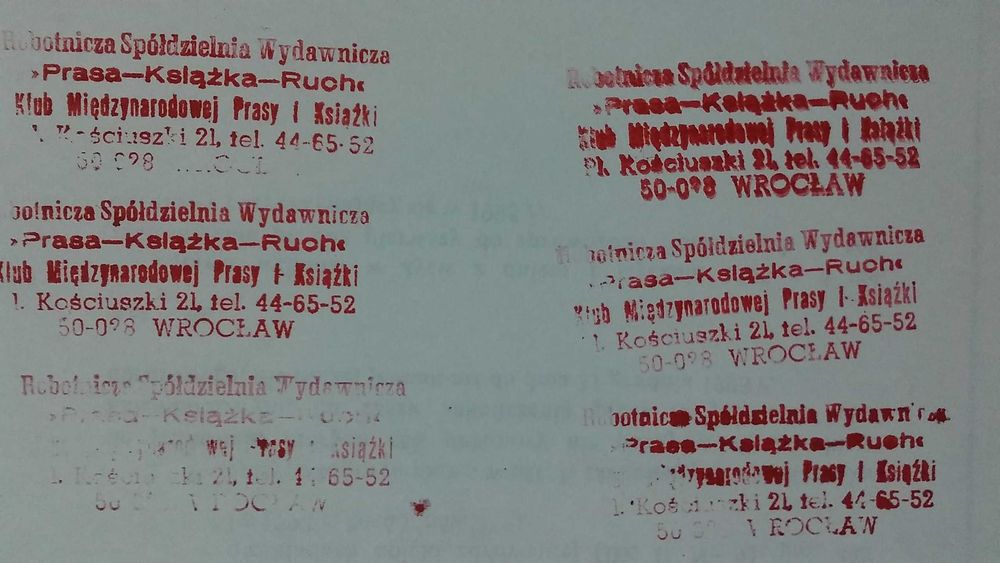 Robotnicza Spółdzielnia Wydawnicza
»Prasa—Książka—Ruch«
Klub Międzynarodowej Prasy i Książki
l. Kościuszki 21, tel. 44-65-52
50-098
botnicza Spółdzielnia Wydawnicza
»Prasa—Książka—Ruch«
Klub Międzynarodowej Prasy i Książki
l. Kościuszki 21, tel. 44-65-52
50-098 WROCŁAW
Robotnicza Spółdzielnia Wydawnicza
»Prasa—Książka—Ruch
wej Prasy i Książki
l. Kościuszki 21, tel. 44-65-52
WROCŁAW
Robotnicza Spółdzielnia Wydawnicza
»Prasa—Książka—Ruch«
Klub Międzynarodowej Prasy i Książki
Pl. Kościuszki 21, tel. 44-65-52
50-098 WROCŁAW
Robotnicza Spółdzielnia Wydawnicza
Prasa—Książka—Ruch«
Klub Międzynarodowej Prasy i Książki
l. Kościuszki 21, tel. 44-65-52
50-098 WROCŁAW
Robotnicza Spółdzielnia Wydawnicza
»Prasa—Książka—Ruch«
Międzynarodowej Prasy i Książki
l. Kościuszki 21, tel. 44-65-52
WROCŁAW